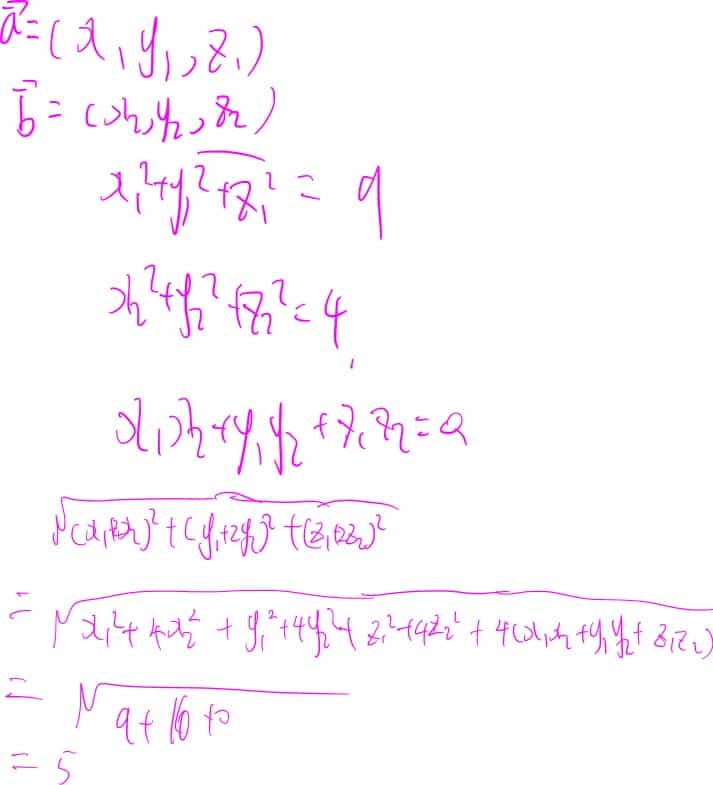 a⃗=(x₁y₁,z₁)
b⃗=(x₂,y₂,z₂)
x₁²+y₁²+z₁²=9
x₂²+y₂²+z₂²=4
x₁x₂+y₁y₂+z₁z₂=0
√((x₁+2x₂)²+(y₁+2y₂)²+(z₁+2z₂)²)
=√(x₁²+4x₂²+y₁²+4y₂²+z₁²+4z₂²+4(x₁x₂+y₁y₂+z₁z₂))
=√(9+16+0)
=5